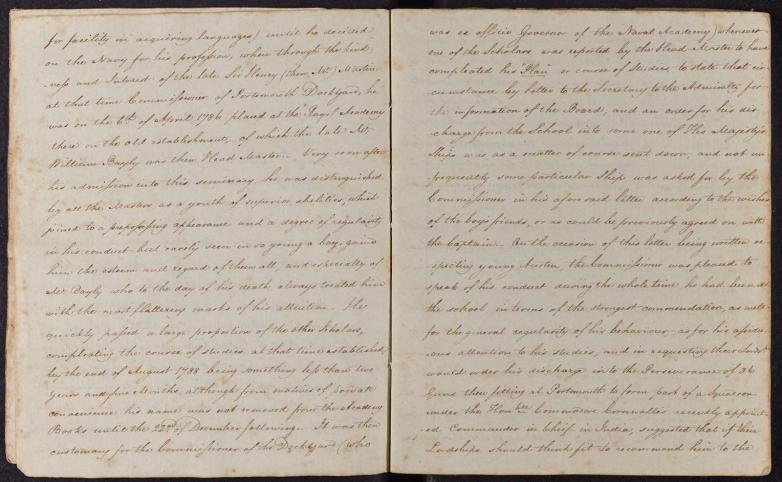 for facility in acquiring languages) until he decided
on the Navy for his profession, when through the kind
ness and Interest of the late Sir Henry (then Mr.) Martin
at that time Commissioner of Portsmouth Dockyard, he
was on the 6th of April 1786 placed at the Royal Academy
there on the old establishment, of which the late Mr.
William Bayly was then Head Master. Very soon after
his admission into this seminary he was distinguished
by all the Masters as a youth of superior abilities, which
joined to a prepossessing appearance and a degree of regularity
in his conduct but rarely seen in so young a boy, gain'd
him the esteem and regard of them all, and especially of
Mr. Bayly who to the day of his death always treated him
with the most flattering marks of his attention. He
quickly passed a large proportion of the other Scholars,
compleating the course of studies at that time established,
by the end of August 1788 being something less than two
years and five Months, although from motives of private
convenience his name was not removed from the Academy
Books until the 22nd. of December following. It was then
customary for the Commissioner of the Dockyard (who
was ex officio Governor of the Naval Academy) whenever
one of the Scholars was reported by the Head Master to have
compleated his Plan or course of Studies, to state that cir
cumstance by letter to the Secretary to the Admiralty for
the information of the Board, and an order for his dis
charge from the School into some one of His Majesty's
Ships was as a matter of course sent down, and not un
frequently some particular Ship was asked for by the
Commissioner in his aforesaid letter according to the wishes
of the boy's friends, or as could be previously agreed on with
the Captain. On the occasion of this letter being written re
specting young Austen, the Commissioner was pleased to
speak of his conduct during the whole time he had been at
the school in terms of the strongest commendation, as well
for the general regularity of his behaviour as for his assidu
ous attention to his studies, and in requesting their Lordsps.
would order his discharge into the Perseverance of 36
Guns then fitting at Portsmouth to form part of a Squadron
under the Honble. Commodore Cornwallis recently appoint
ed Commander in Chief in India, suggested that if their
Lordships should think fit to recommend him to the